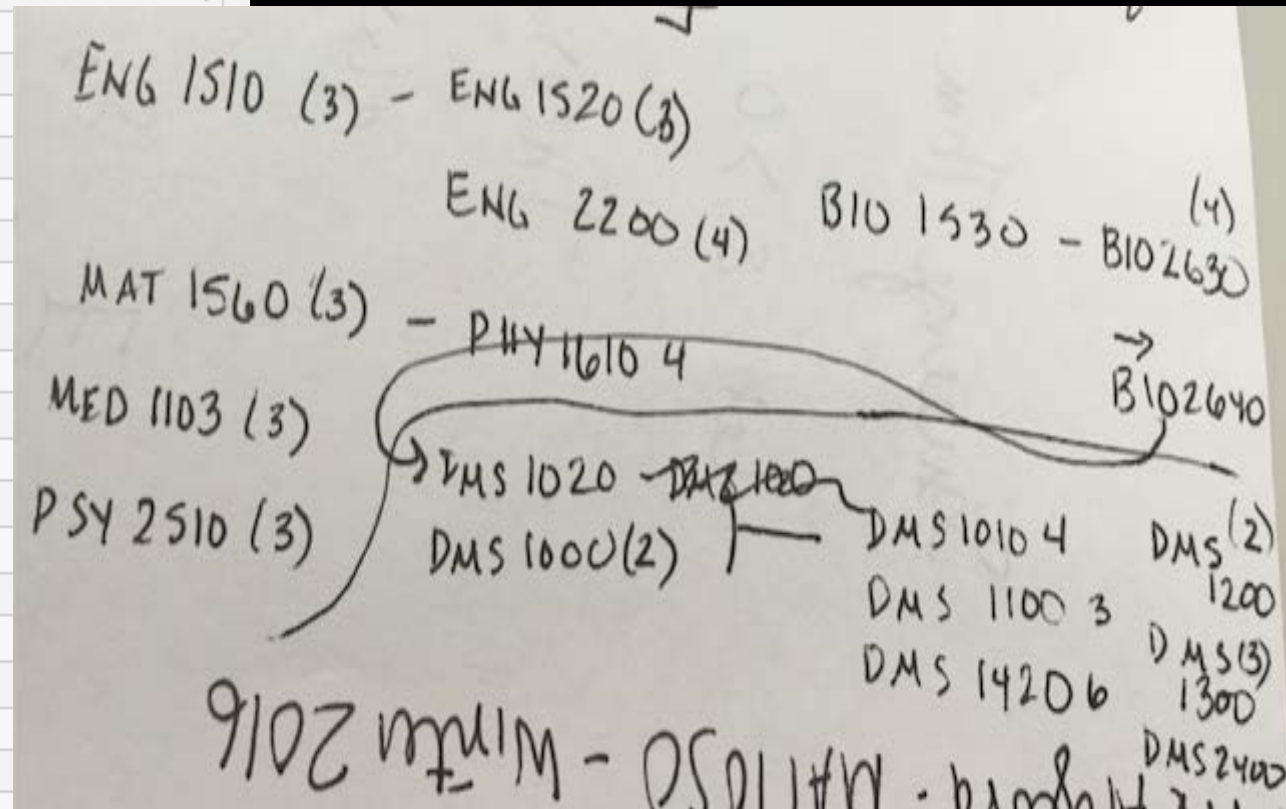 ENG 1510 (3) - ENG 1520 (3)
ENG 2200 (4)
BIO 1530 - BIO 2630 (4)
MAT 1560 (3) - PHY 1610 4
→ BIO 2640
MED 1103 (3)
PSY 2510 (3)
DMS 1020
DMS 1000 (2)
DMS 1010 4
DMS 1100 3
DMS 1420 6
DMS (2)
1200
DMS (3)
1300
DMS 2400
MAT1050 - Winter 2016